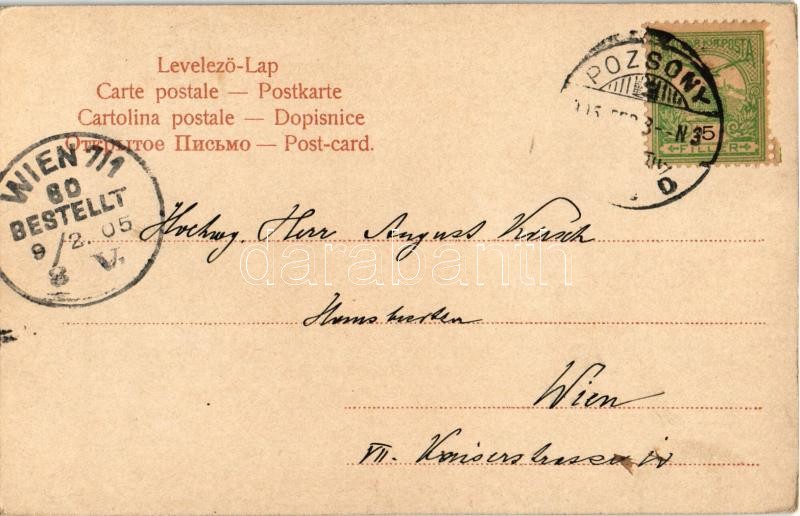 Levelezö-Lap
Carte postale — Postkarte
Cartolina postale — Dopisnice
Открытое Письмо — Post-card.
POZSONY
POSTA
5
FILLÉR
WIEN 7/1
60
BESTELLT
9/2.05
8 V.
Hochwg. Herr August Kirsch
darabanth
Wien
VII. Kaiserstrasse 10